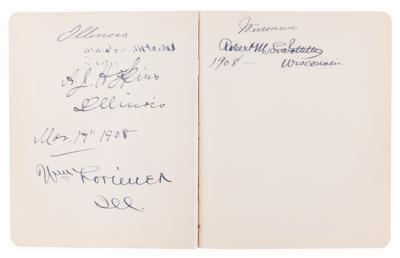 Illinois
A. J. Hopkins
Illinois
Mar. 17" 1908
Wm Lorimer
Ill.
Wisconsin
Robert M. La Follette
1908 – Wisconsin